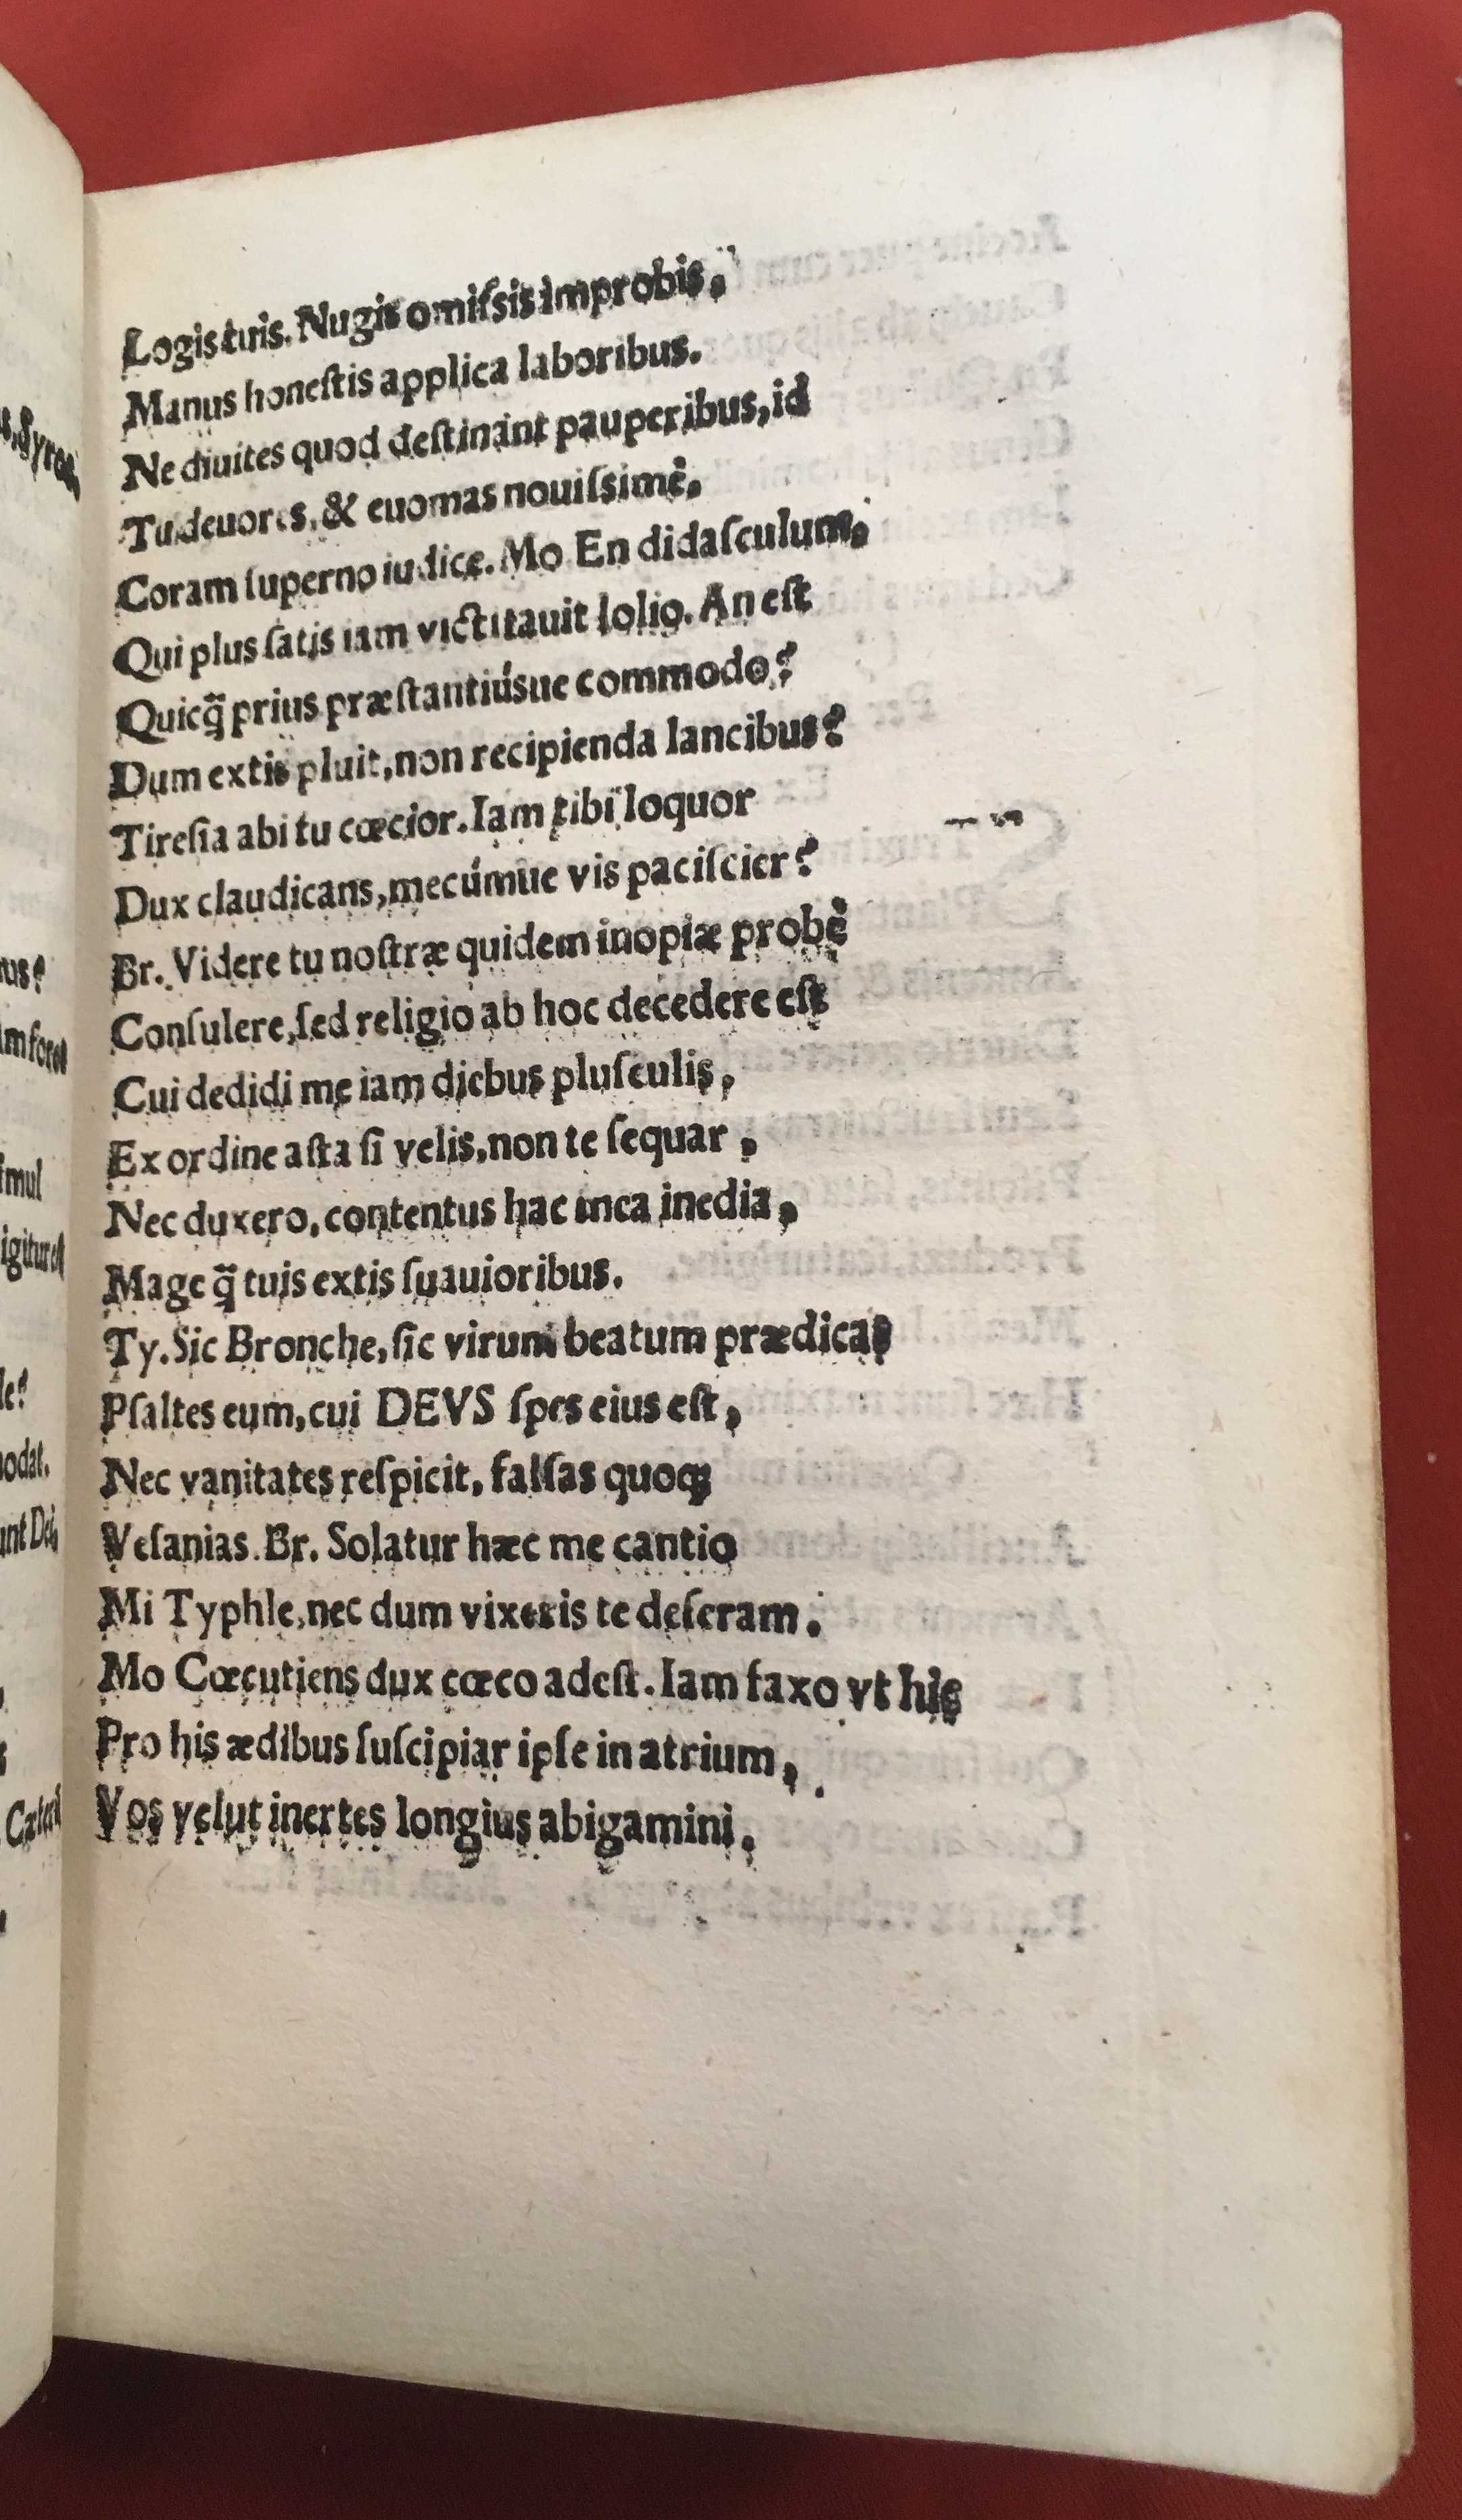 Logis tuis. Nugis omiſsis improbis,
Manus honeſtis applica laboribus.
Ne diuites quod deſtinánt pauperibus, id
Tu deuores, & euomas nouiſsimè,
Coram ſuperno iudice. Mo En didaſculum,
Qui plus ſatis iam victitauit lolio. An eſt
Quicq̃ prius præſtantiúsue commodo?
Dum extis pluit, non recipienda lancibus?
Tireſia abi tu cœcior. Iam tibi loquor
Dux claudicans, mecúmue vis paciſcier?
Br. Videre tu noſtræ quidem inopiæ probè
Conſulere, ſed religio ab hoc decedere eſt
Cui dedidi me iam diebus pluſculis,
Ex ordine aſta ſi velis, non te ſequar,
Nec duxero, contentus hac mea inedia,
Mage q̃ tuis extis ſuauioribus.
Ty. Sic Bronche, ſic virum beatum prædicas
Pſaltes eum, cui DEVS ſpes eius eſt,
Nec vanitates reſpicit, falſas quoq;
Veſanias. Br. Solatur hæc me cantio
Mi Typhle, nec dum vixeris te deſeram.
Mo Cœcutiens dux cœco adeſt. Iam faxo vt hic
Pro his ædibus ſuſcipiar ipſe in atrium,
Vos velut inertes longius abigamini,